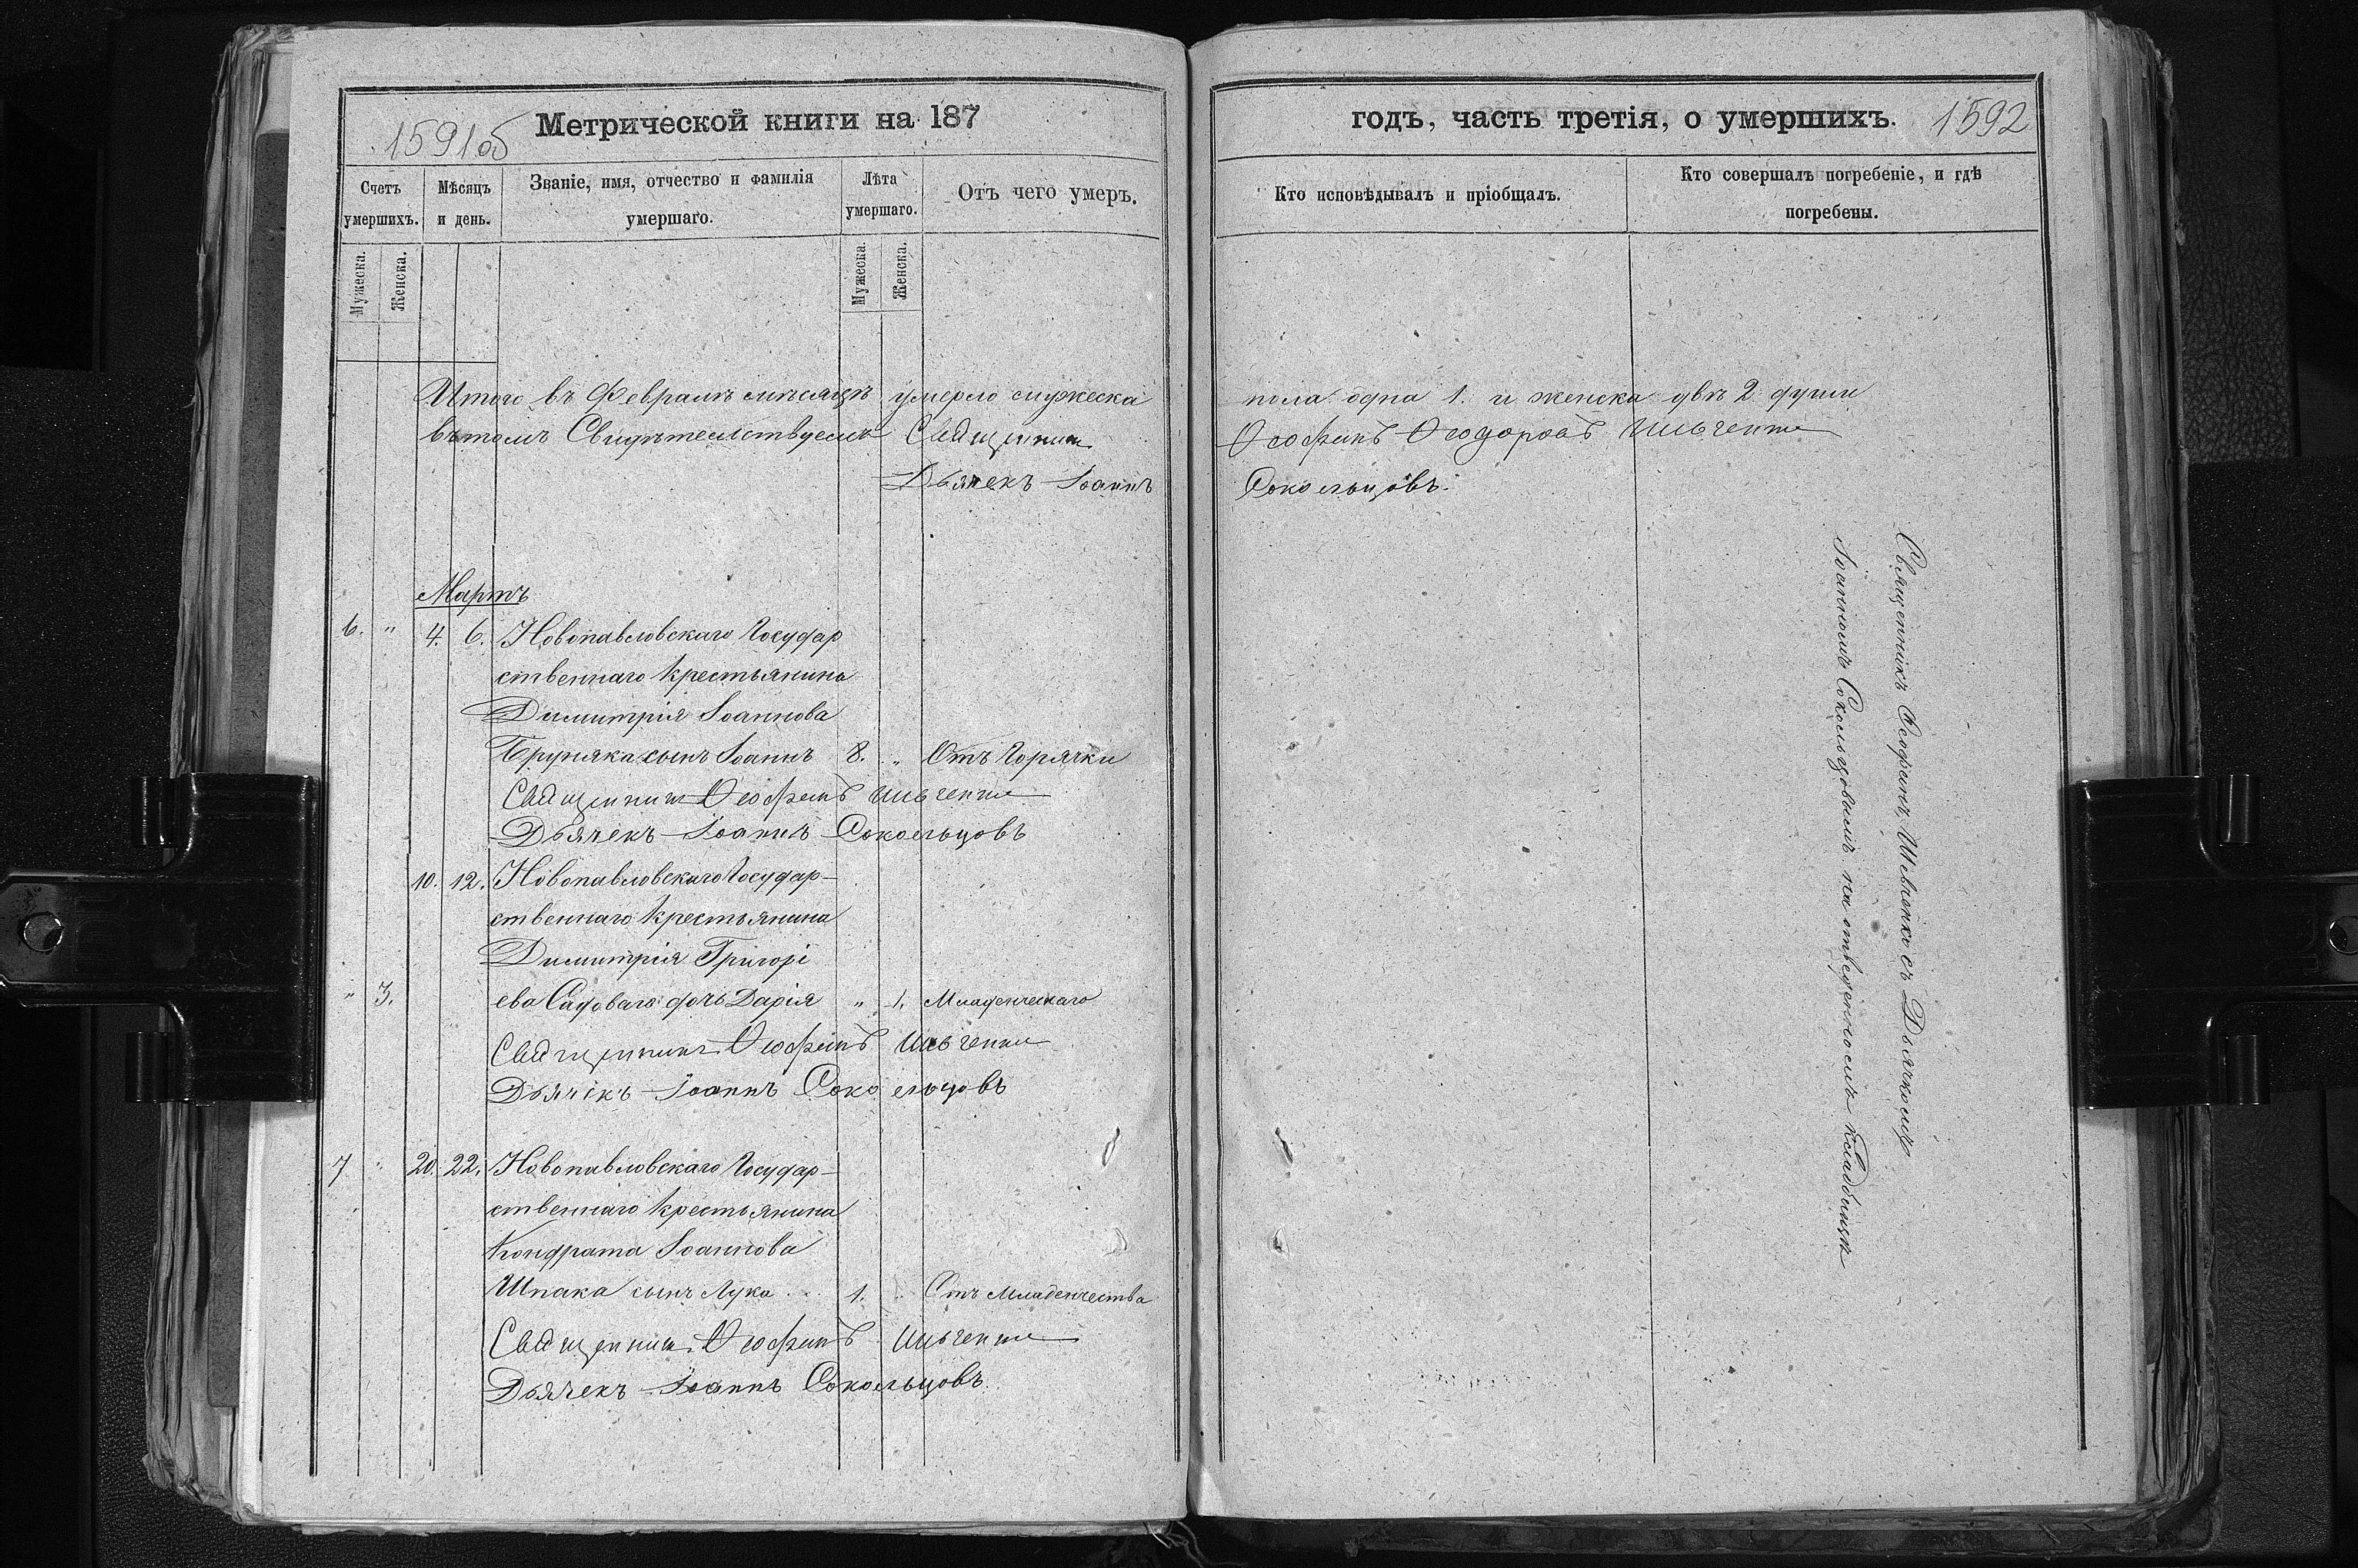 1591об
Метрической книги на 187
Счетъ умершихъ.
Мѣсяцъ и день.
Званіе, имя, отчество и фамилія
умершаго.
Лѣта умершаго.
Отъ чего умеръ.
Мужеска.
Женска.
Мужеска.
Женска.
Итого въ Февралѣ мѣсяцѣ умерло мужеска
въ томъ Свидѣтельствуемъ Священникъ
Дьячекъ Іоаннъ
Мартъ
6. " 4. 6. Новопавловскаго Государ
ственнаго крестьянина
Димитрія Іоаннова
Бруняка сынъ Іоаннъ 8. " Отъ Горячки
Священникъ Ѳеофанъ Шевченко
Дьячекъ Іоаннъ Сокольцовъ
10. 12. Новопавловскаго Государ-
ственнаго крестьянина
Димитрія Григорі
" 3. ева Садоваго дочь Дарія " 1. Младенческаго
Священникъ Ѳеофанъ Шевченко
Дьячекъ Іоаннъ Сокольцовъ
7 " 20. 22. Новопавловскаго Государ-
ственнаго крестьянина
Кондрата Іоаннова
Шпака сынъ Лука 1. Отъ Младенчества
Священникъ Ѳеофанъ Шевченко
Дьячекъ Іоаннъ Сокольцовъ
годъ, часть третія, о умершихъ. 1592
Кто исповѣдывалъ и пріобщалъ.
Кто совершалъ погребеніе, и гдѣ
погребены.
пола одна 1. и женска двѣ 2 души
Ѳеофанъ Ѳеодоровъ Шевченко
Сокольцовъ.
Священникъ Ѳеофанъ Шевченко съ Дьячкомъ
Іоанномъ Сокольцовымъ на отведенномъ кладбищѣ